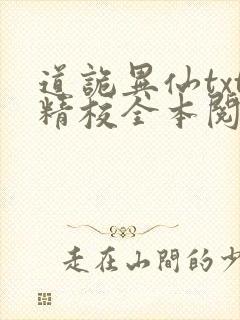 道詭異仙txt
精校全本閱
走在山間的少